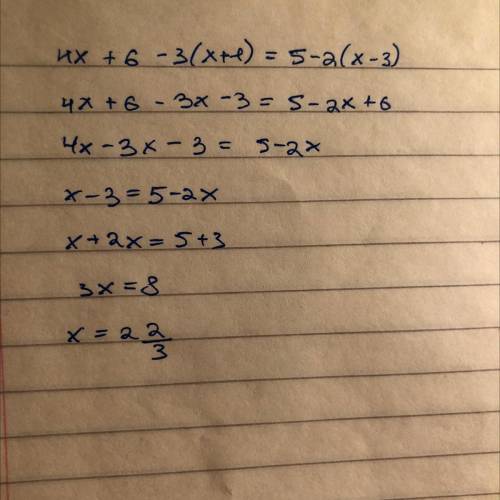 4x + 6 - 3(x+1) = 5 - 2(x - 3)
4x + 6 - 3x - 3 = 5 - 2x + 6
4x - 3x - 3 = 5 - 2x
x - 3 = 5 - 2x
x + 2x = 5 + 3
3x = 8
x = 2 2/3